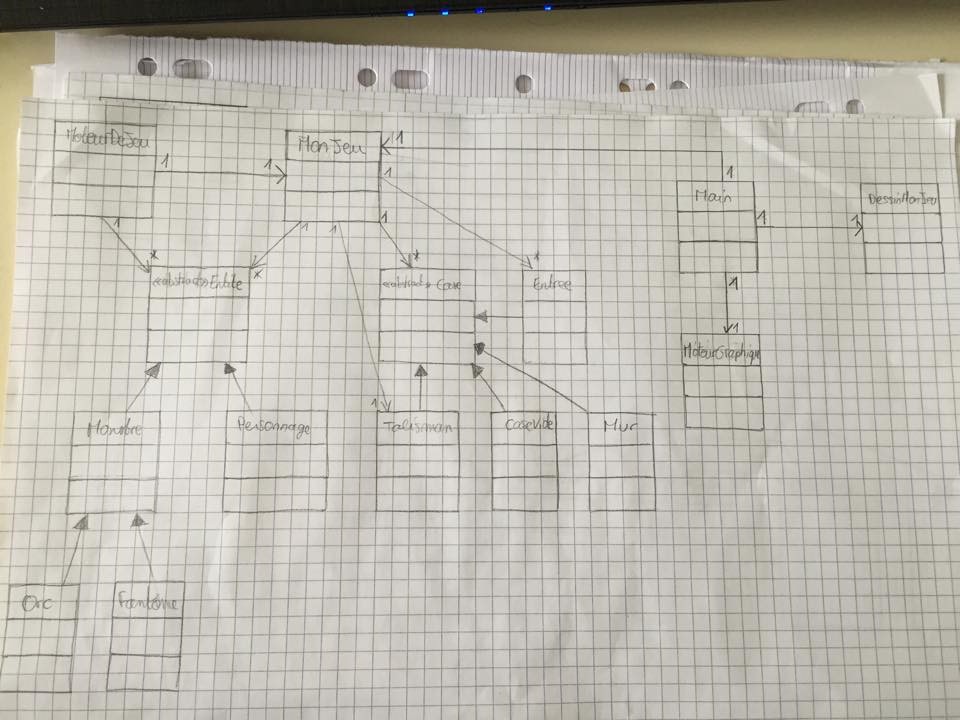 MoteurDeJeu
MonJeu
1
1
1
1
1
Main
DessinMonJeu
1
1
1
1
1
1
*
*
*
*
<<abstract>> Entite
<<abstract>> Case
Entree
1
1
MoteurGraphique
1
Monstre
Personnage
Talisman
CaseVide
Mur
Orc
Fantôme